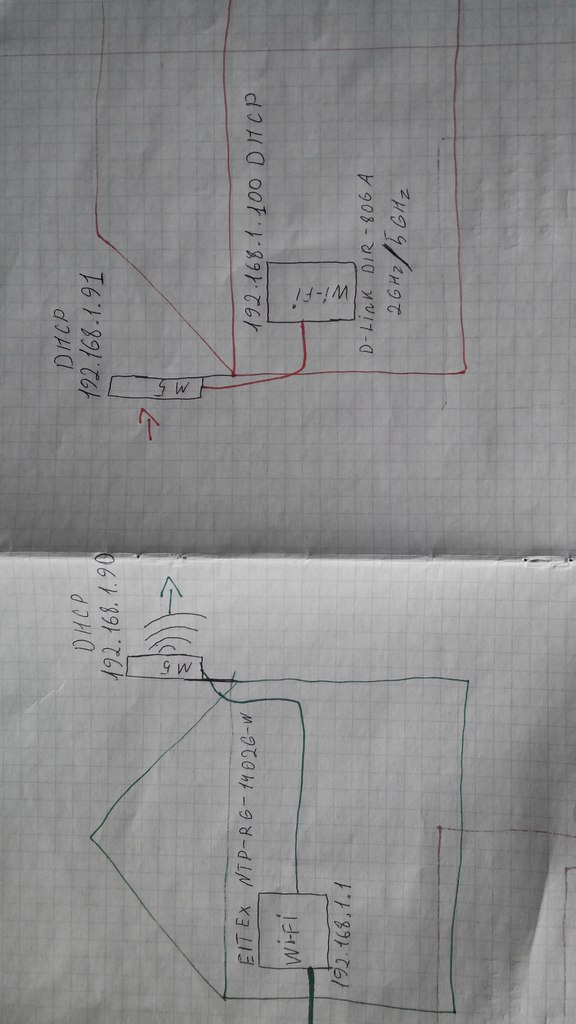 DHCP
192.168.1.90
M5
EITEX NTP-RG-1402G-W
Wi-Fi
192.168.1.1
DHCP
192.168.1.91
M5
192.168.1.100 DHCP
Wi-Fi
D-Link DIR-806A
2GHz/5GHz